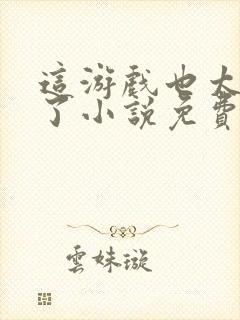 這游戲也太
了小說免費
雲妹璇